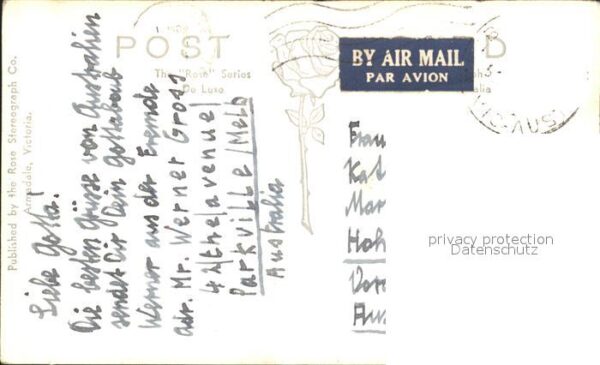 Published by the Rose Stereograph Co.
Armadale, Victoria.
POST
D
The "Rose" Series
De Luxe
BY AIR MAIL
PAR AVION
Liebe Gotta!
Die besten Grüsse von Australien
sendet Dir Dein Gottabub
Werner aus der Fremde
adr. Mr. Werner Gross
Parkville / Melb
Australia
Frau
Kat
Mar
Hoh
Vor
Aus
privacy protection
Datenschutz